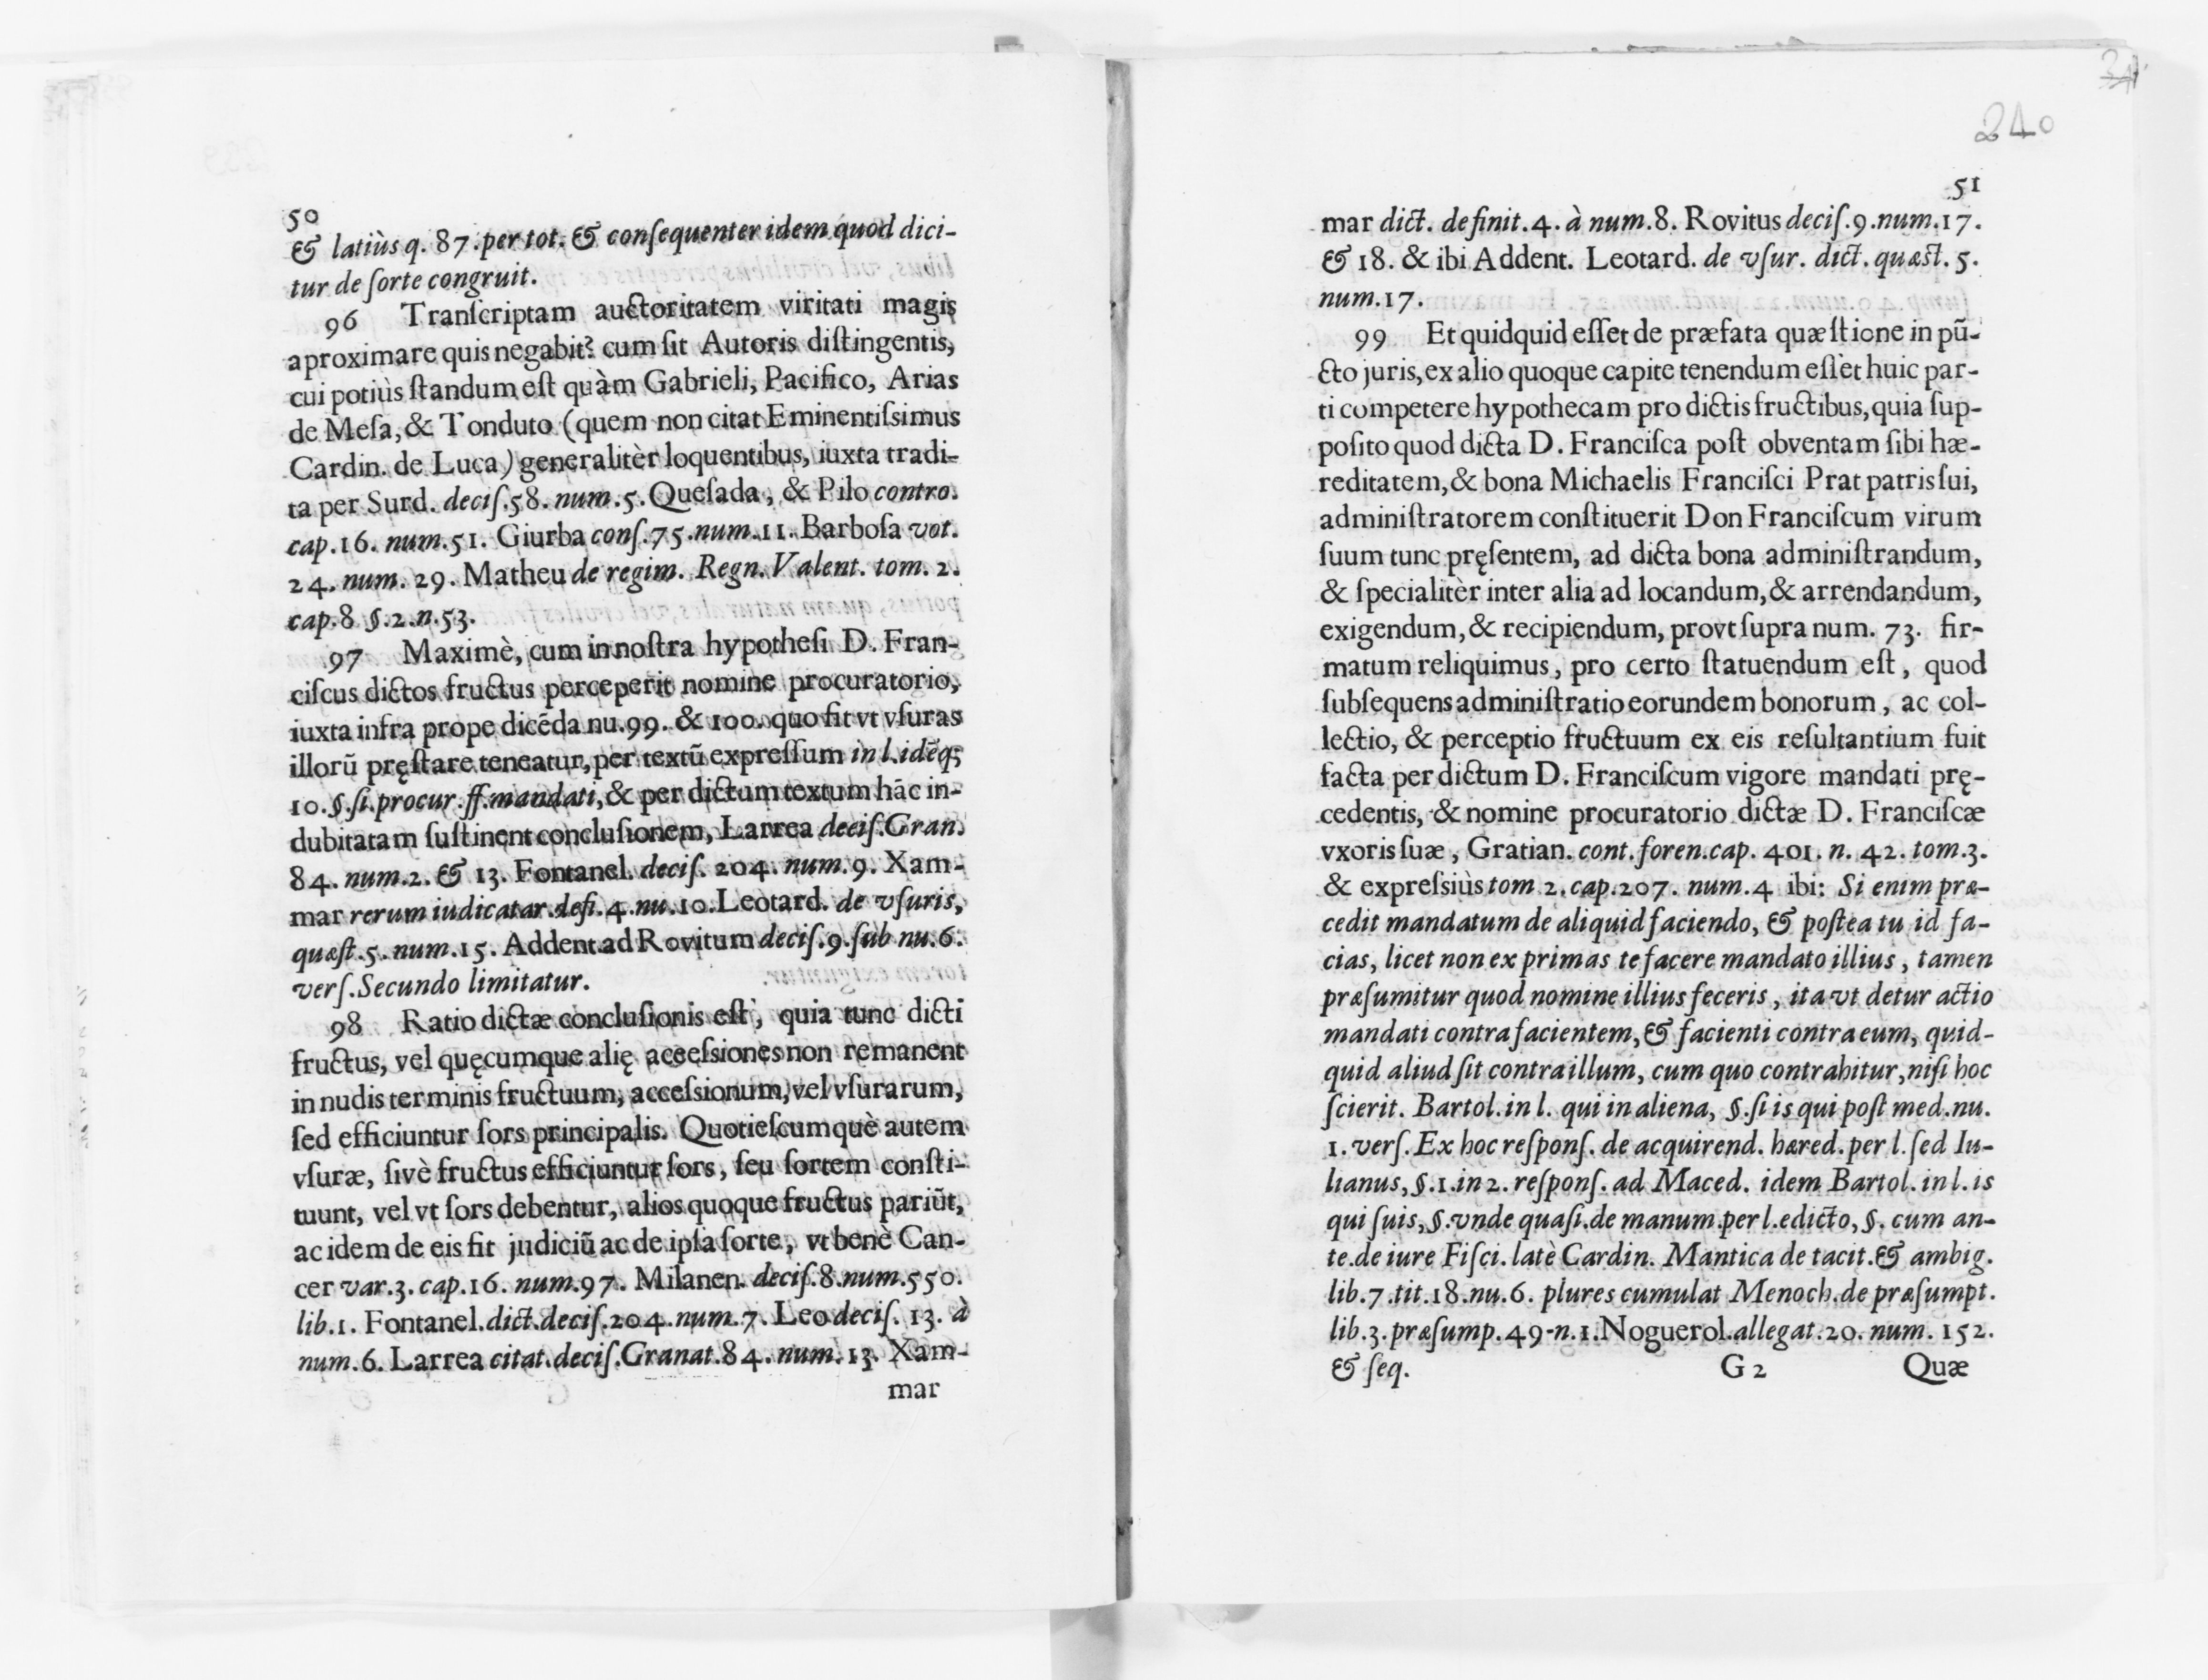 50
& latiùs q. 87. per tot. & conſequenter idem quod dici-
tur de ſorte congruit.
96 Tranſcriptam auctoritatem viritati magis
aproximare quis negabit? cum ſit Autoris diſtingentis,
cui potiùs ſtandum eſt quàm Gabrieli, Pacifico, Arias
de Meſa, & Tonduto (quem non citat Eminentiſsimus
Cardin. de Luca) generalitèr loquentibus, iuxta tradi-
ta per Surd. deciſ. 58. num. 5. Queſada, & Pilo contro.
cap. 16. num. 51. Giurba conſ. 75. num. 11. Barboſa vot.
24. num. 29. Matheu de regim. Regn. Valent. tom. 2.
cap. 8 §. 2. n. 53.
97 Maximè, cum in noſtra hypotheſi D. Fran-
ciſcus dictos fructus perceperit nomine procuratorio,
iuxta infra prope dicẽda nu. 99. & 100. quo fit vt vſuras
illorũ pręſtare teneatur, per textũ expreſſum in l. idẽq;
10. §. ſi procur. ff. mandati, & per dictum textum hãc in-
dubitatam ſuſtinent concluſionem, Larrea deciſ. Gran.
84. num. 2. & 13. Fontanel. deciſ. 204. num. 9. Xam-
mar rerum iudicatar. defi. 4. nu. 10. Leotard. de vſuris,
quæſt. 5. num. 15. Addent. ad Rovitum deciſ. 9. ſub nu. 6.
verſ. Secundo limitatur.
98 Ratio dictæ concluſionis eſt, quia tunc dicti
fructus, vel quęcumque alię acceſsiones non remanent
in nudis terminis fructuum, acceſsionum, vel vſurarum,
ſed efficiuntur ſors principalis. Quotieſcumquè autem
vſuræ, ſivè fructus efficiuntur ſors, ſeu ſortem conſti-
tuunt, vel vt ſors debentur, alios quoque fructus pariũt,
ac idem de eis fit judiciũ ac de ipſa ſorte, vt benè Can-
cer var. 3. cap. 16. num. 97. Milanen. deciſ. 8. num. 550.
lib. 1. Fontanel. dict. deciſ. 204. num. 7. Leo deciſ. 13. à
num. 6. Larrea citat. deciſ. Granat. 84. num. 13. Xam-
mar
240
51
mar dict. definit. 4. à num. 8. Rovitus deciſ. 9. num. 17.
& 18. & ibi Addent. Leotard. de vſur. dict. quæst. 5.
num. 17.
99 Et quidquid eſſet de præfata quæſtione in pũ-
cto juris, ex alio quoque capite tenendum eſsèt huic par-
ti competere hypothecam pro dictis fructibus, quia ſup-
poſito quod dicta D. Franciſca poſt obventam ſibi hæ-
reditatem, & bona Michaelis Franciſci Prat patris ſui,
adminiſtratorem conſtituerit Don Franciſcum virum
ſuum tunc pręſentem, ad dicta bona adminiſtrandum,
& ſpecialitèr inter alia ad locandum, & arrendandum,
exigendum, & recipiendum, provt ſupra num. 73. fir-
matum reliquimus, pro certo ſtatuendum eſt, quod
ſubſequens adminiſtratio eorundem bonorum, ac col-
lectio, & perceptio fructuum ex eis reſultantium fuit
facta per dictum D. Franciſcum vigore mandati prę-
cedentis, & nomine procuratorio dictæ D. Franciſcæ
vxoris ſuæ, Gratian. cont. foren. cap. 401. n. 42. tom. 3.
& expreſsiùs tom 2. cap. 207. num. 4 ibi: Si enim præ-
cedit mandatum de aliquid faciendo, & poſtea tu id fa-
cias, licet non exprimas te facere mandato illius, tamen
præſumitur quod nomine illius feceris, ita vt detur actio
mandati contra facientem, & facienti contra eum, quid-
quid aliud ſit contra illum, cum quo contrahitur, niſi hoc
ſcierit. Bartol. in l. qui in aliena, §. ſi is qui poſt med. nu.
1. verſ. Ex hoc reſponſ. de acquirend. hæred. per l. ſed Iu-
lianus, §. 1. in 2. reſponſ. ad Maced. idem Bartol. in l. is
qui ſuis, §. vnde quaſi. de manum. per l. edicto, §. cum an-
te. de iure Fiſci. latè Cardin. Mantica de tacit. & ambig.
lib. 7. tit. 18. nu. 6. plures cumulat Menoch. de præſumpt.
lib. 3. præſump. 49-n. 1. Noguerol. allegat. 20. num. 152.
& ſeq. G 2 Quæ